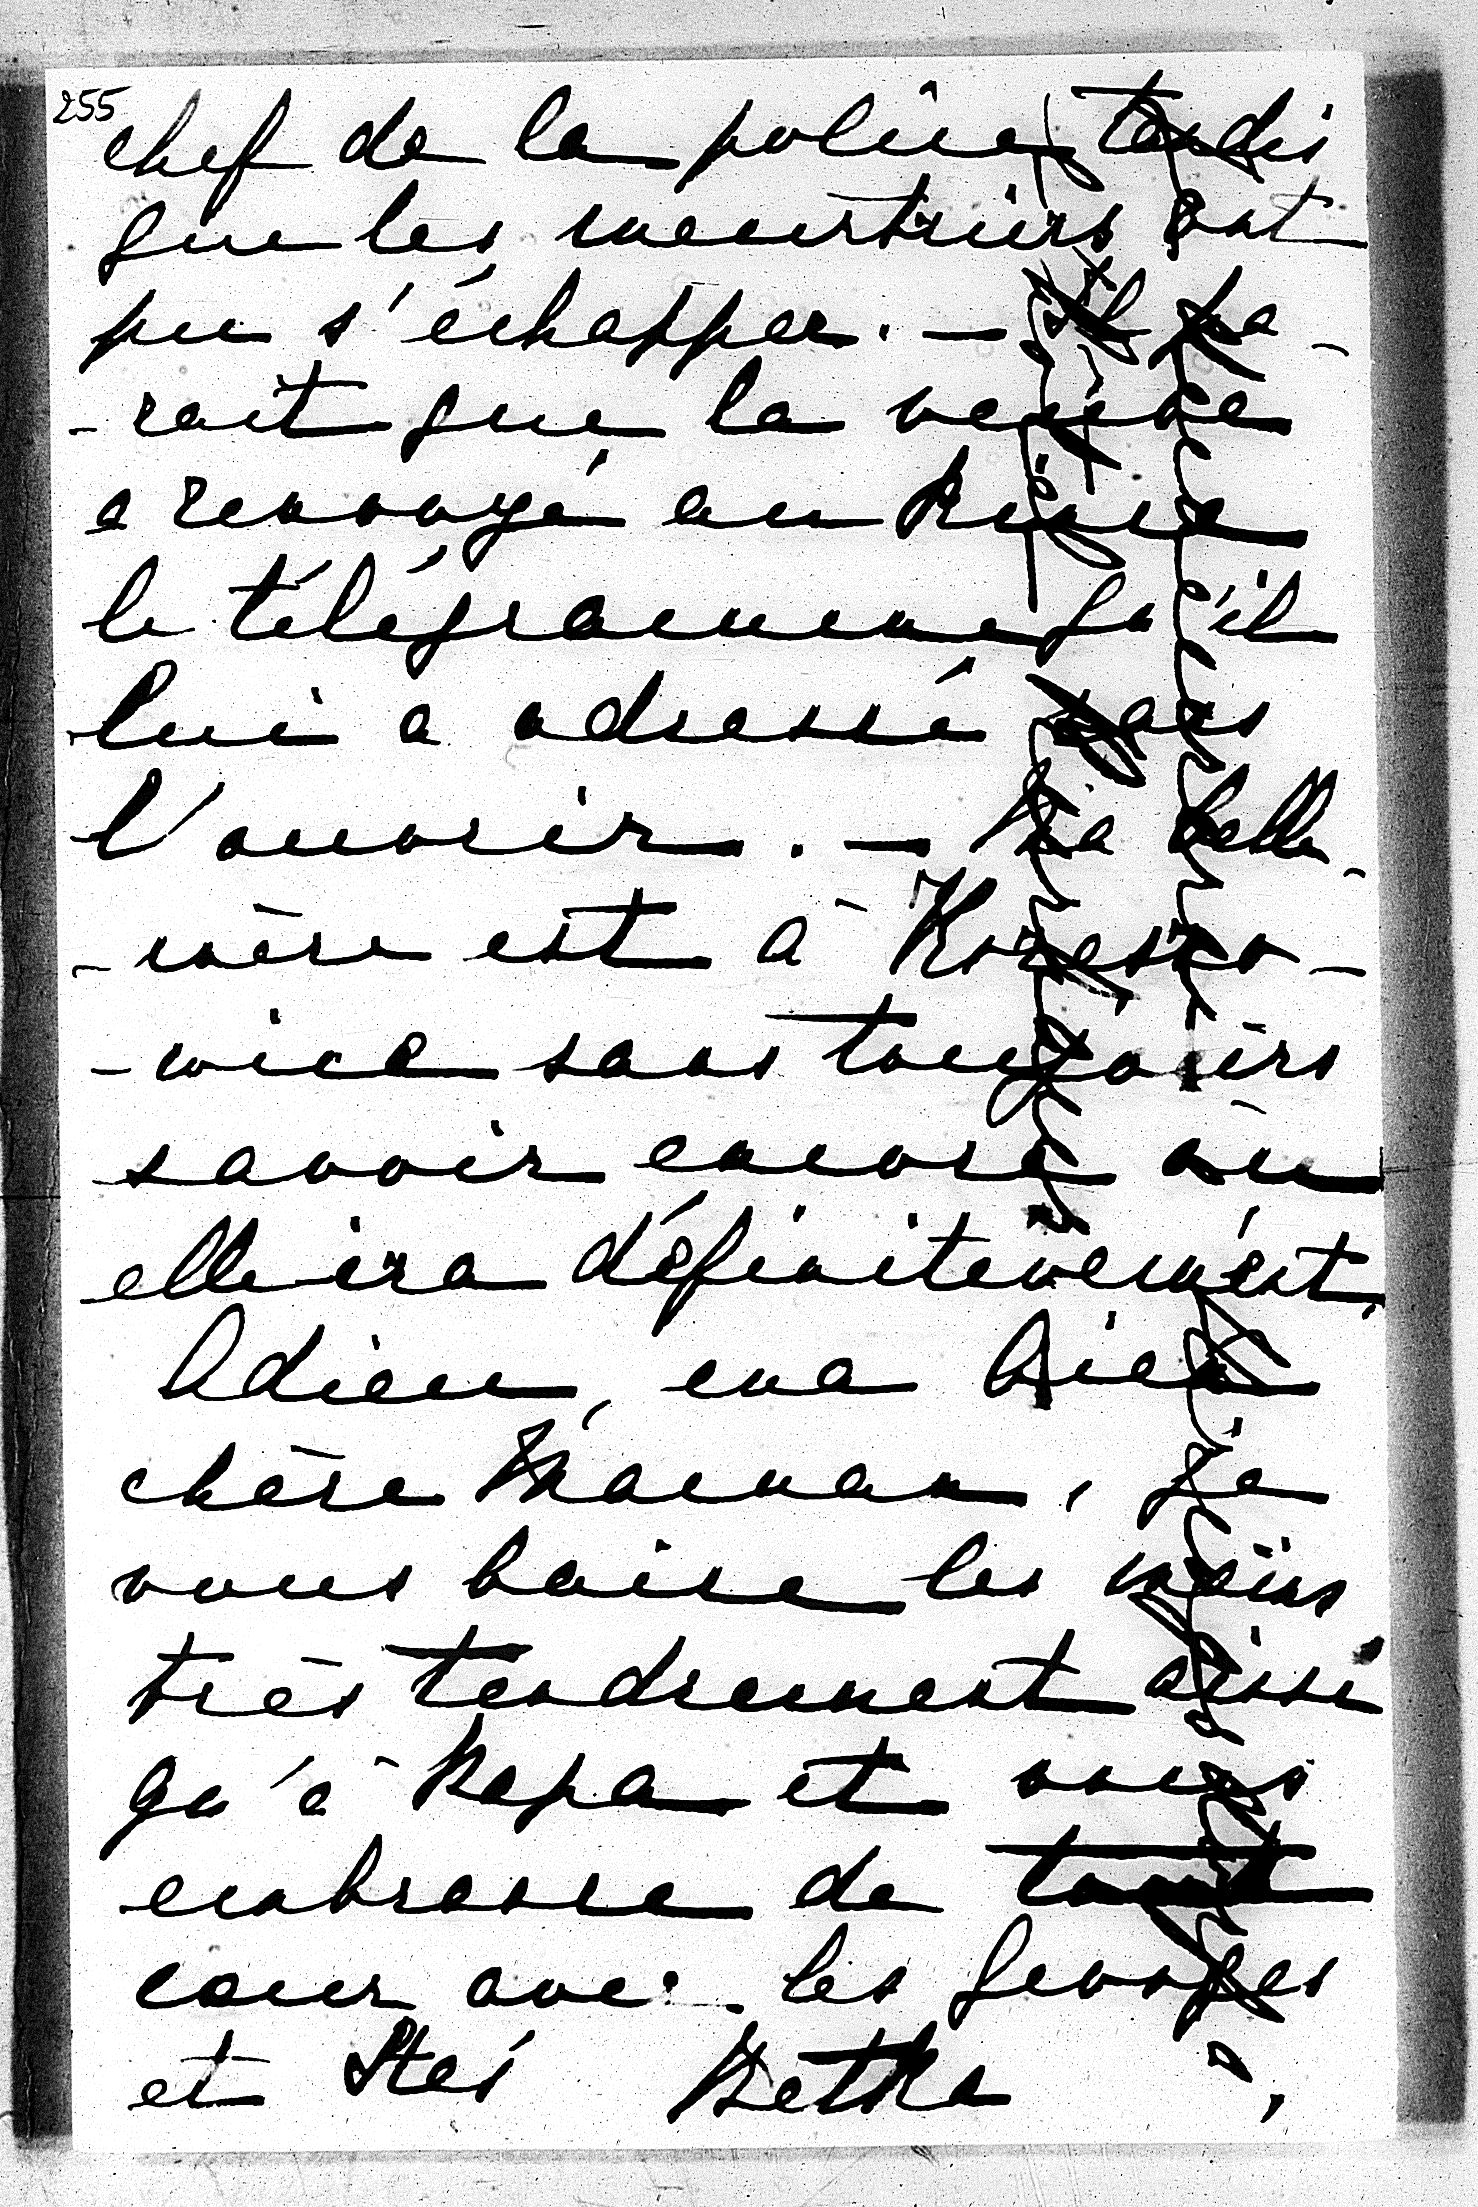 255
chef de la police, tandis
que les meurtriers ont
pu s'échapper. — Il pa-
-rait que la veuve
a renvoyé au Prince
le télégramme qu'il
lui a adressé sans
l'ouvrir. — Ma belle-
-mère est à Kozesco-
-wice sans toujours
savoir encore où
elle ira définitivement.
Adieu, ma bien
chère Maman, je
vous baise les mains
très tendrement ainsi
qu'à Papa et vous
embrasse de tout
cœur avec les Georges
et Stés Betka